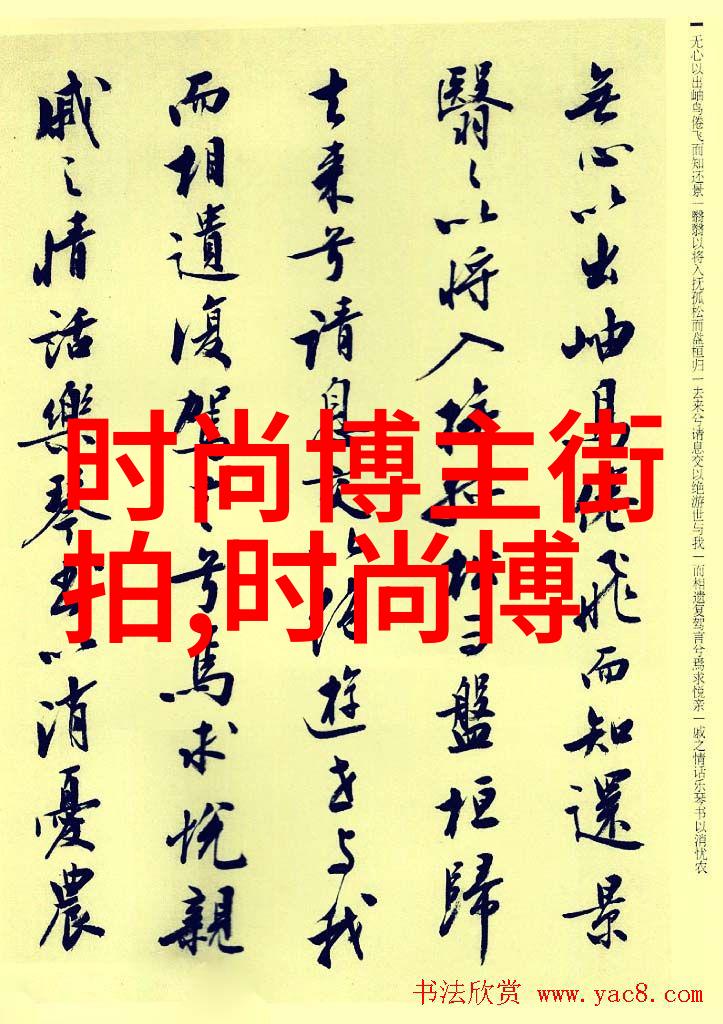 无心以出岫鸟倦飞而知还景一翳翳以将入抚孤松而盘桓归一去来兮请息交以绝游世与我一而相遗复驾言兮焉求悦亲一戚之情话乐琴书以消忧农
無心以出岫鳥倦飛而知還景
翳々以将入撫孤松而盤桓歸
去来兮請息交以絶遊世与我
而相遺復駕言兮焉求悦親
戚之情話樂琴書以消憂農
时尚博主街
拍,时尚博
书法欣赏 www.yac8.com